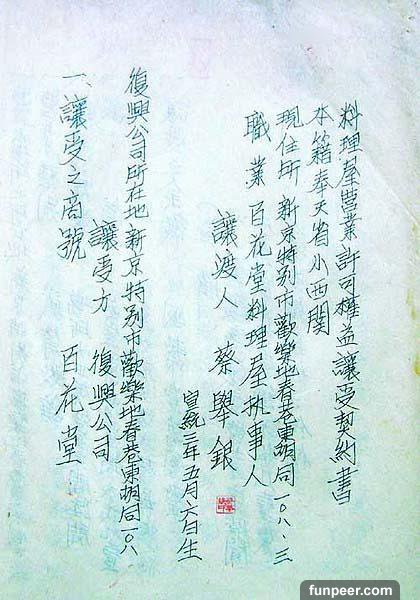 料理屋營業許可權益讓受契約書
本籍奉天省小西関
現住所 新京特別市歡樂地春巷東胡同一〇八、三
職業 百花堂料理屋执事人
讓渡人 蔡舉銀
宣統三年五月六日生
復興公司所在地 新京特别市歡樂地春巷東胡同一〇八
讓受方 復興公司
一、讓受之商號 百花堂
funpeer.com